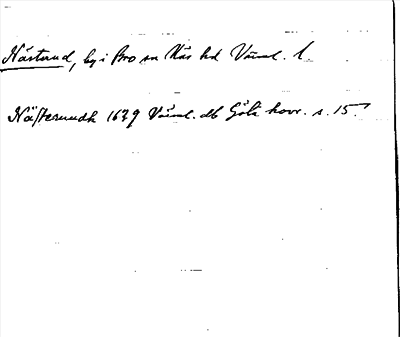 Närsund, by i Bro sn Näs hd Värml. l
Näfzesundh 1639 Värml. db Göta hovr. s. 15.